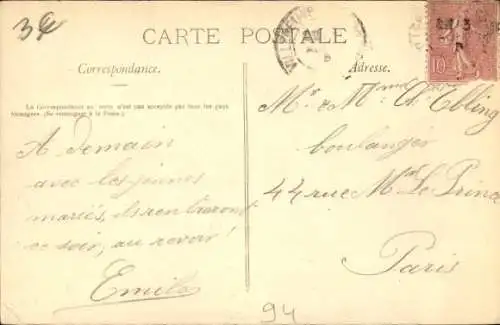 CARTE POSTALE
Correspondance.
Adresse.
La Correspondance au verso n'est pas acceptée par tous les pays
étrangers. (Se renseigner à la Poste.)
10
A demain
avec les jeunes
mariés, ils rentreront
ce soir, au revoir!
Emile
Mr & Mme A. Ebling
boulanger
44 rue Mr Le Prince
Paris
94